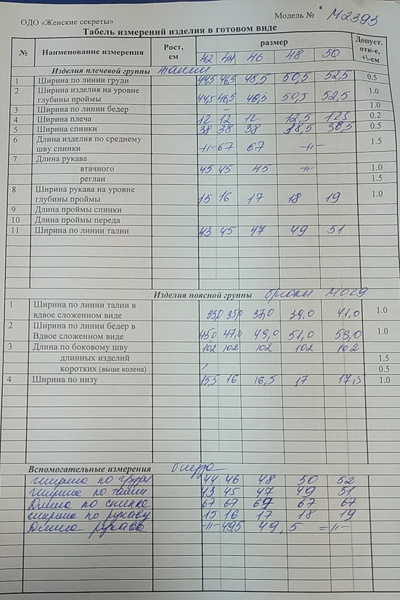 ОДО «Женские секреты»
Модель № М2393
Табель измерений изделия в готовом виде
№ Наименование измерения Рост, см размер Допуст. отк-е, +\-см
42 44 46 48 50
Изделия плечевой группы
1 Ширина по линии груди 44,5 46,5 48,5 50,5 52,5 0.5
2 Ширина изделия на уровне глубины проймы 44,5 46,5 48,5 50,5 52,5 1.0
3 Ширина по линии бедер 1.0
4 Ширина плеча 12 12 12 12,5 0.2
5 Ширина спинки 38 38 38 38,5 38,5 0.5
6 Длина изделия по среднему шву спинки -11- 67 67 -11- 1.5
7 Длина рукава
втачного 45 45 45 -11- 1.0
реглан 1.5
8 Ширина рукава на уровне глубины проймы 15 16 17 18 19 1.0
9 Длина проймы спинки
10 Длина проймы переда
11 Ширина по линии талии 43 45 47 49 51
Изделия поясной группы брюки
1 Ширина по линии талии в вдвое сложенном виде 33,0 35,0 37,0 39,0 41,0 1.0
2 Ширина по линии бедер в Вдвое сложенном виде 45,0 47,0 49,0 51,0 53,0 1.0
3 Длина по боковому шву 102 102 102 102 102
длинных изделий 1.5
коротких (выше колена) 0.5
4 Ширина по низу 15,5 16 16,5 17 17,5 1.0
Вспомогательные измерения
Ширина по груди 44 46 48 50 52
Ширина по талии 43 45 47 49 51
Длина по спинке 67 67 67 67 67
Ширина по рукаву 15 16 17 18 19
Длина рукава -11- 49,5 49,5 -11-